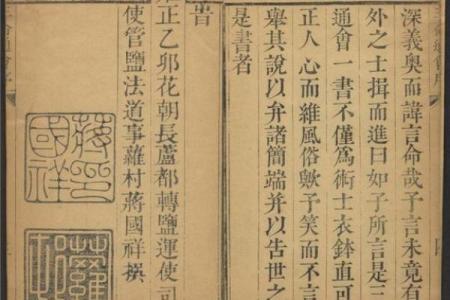 深義奧而諱言命哉予言未竟有
外之士揖而進曰如子所言是三
通會一書不僅為術士衣鉢直可
正人心而維風俗歟予笑而不言
舉其說以弁諸簡端并以告世之
是書者
旹
正乙卯花朝長蘆都轉鹽運使司
使管鹽法道事蘿村蔣國祥撰
蔣印
國祥
蘿